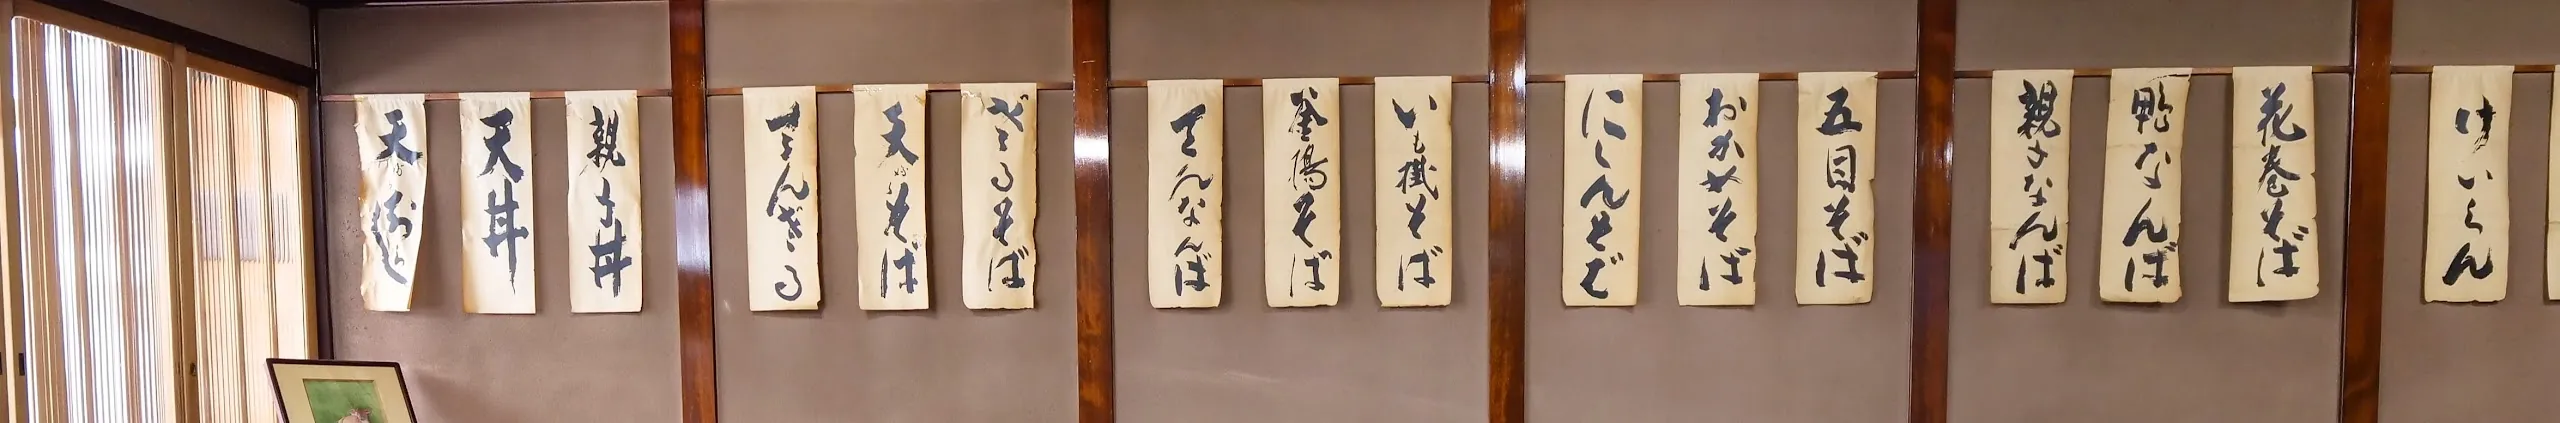 けいらん
花巻そば
鴨なんば
親子なんば
五目そば
おかめそば
にしんそば
いも掛そば
釜揚そば
てんなんば
ざるそば
天ぷらそば
てんざる
親子丼
天丼
天